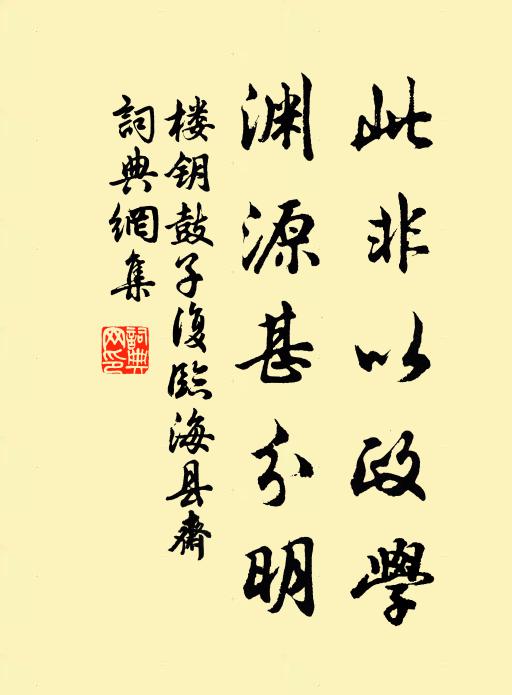 此非以政學
渊源甚分明
楼钥鼓子復臨海县齋
詞典網集
詞典网印